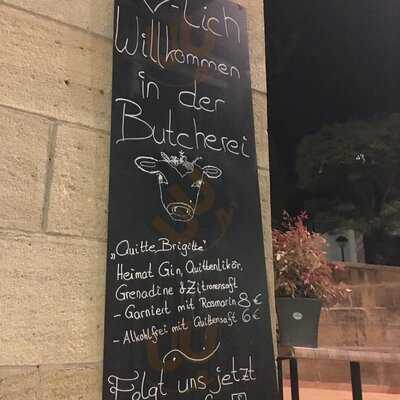 ♡-Lich
Willkommen
in der
Butcherei
„Quitte, Brigitte"
Heimat Gin, Quittenlikör,
Grenadine & Zitronensaft
- Garniert mit Rosmarin 8€
- Alkohlfrei mit Quittensaft 6€
Folgt uns jetzt